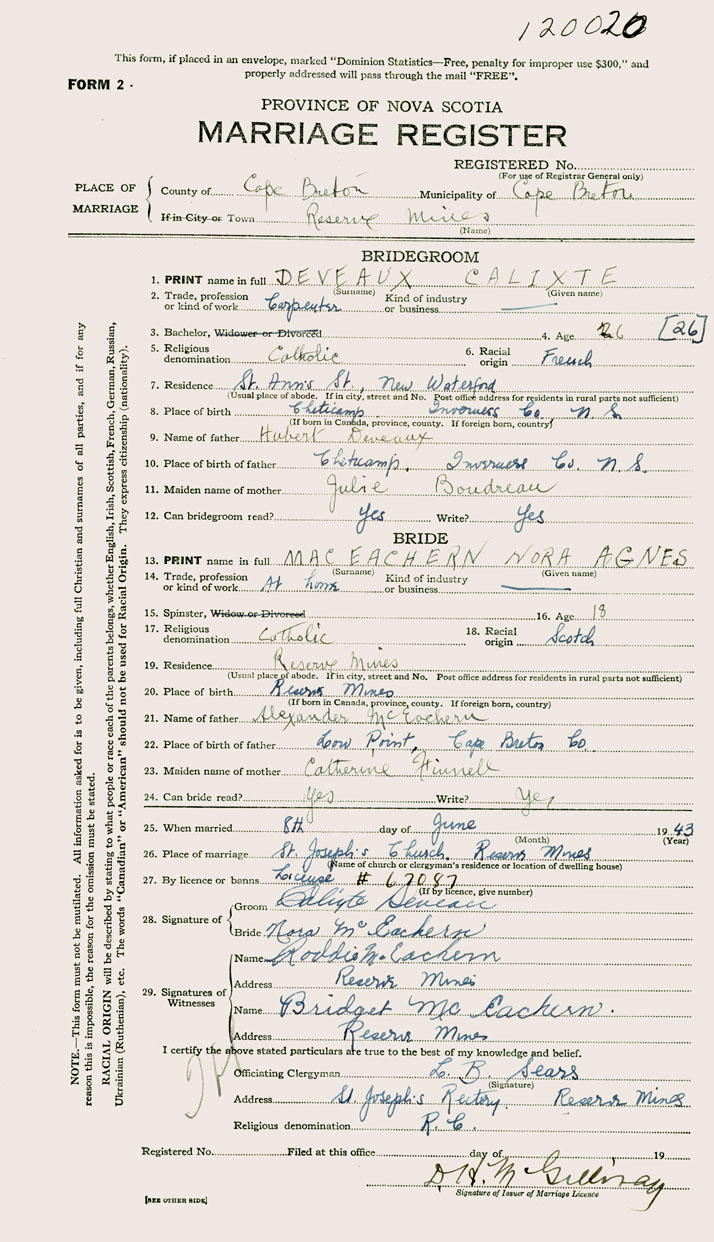 120020
This form, if placed in an envelope, marked "Dominion Statistics—Free, penalty for improper use $300," and
properly addressed will pass through the mail "FREE".
FORM 2 -
PROVINCE OF NOVA SCOTIA
MARRIAGE REGISTER
REGISTERED No.
(For use of Registrar General only)
PLACE OF MARRIAGE
County of Cape Breton Municipality of Cape Breton
If in City or Town Reserve Mines
(Name)
BRIDEGROOM
1. PRINT name in full DEVEAUX CALIXTE
(Surname) (Given name)
2. Trade, profession or kind of work Carpenter Kind of industry or business
3. Bachelor, Widower or Divorced 4. Age 26 [26]
5. Religious denomination Catholic 6. Racial origin French
7. Residence St. Ann's St., New Waterford
(Usual place of abode. If in city, street and No. Post office address for residents in rural parts not sufficient)
8. Place of birth Cheticamp Inverness Co. N. S.
(If born in Canada, province, county. If foreign born, country)
9. Name of father Hubert Deveaux
10. Place of birth of father Chetcamp, Inverness Co. N. S.
11. Maiden name of mother Julie Boudreau
12. Can bridegroom read? Yes Write? Yes
BRIDE
13. PRINT name in full MAC EACHERN NORA AGNES
(Surname) (Given name)
14. Trade, profession or kind of work At home Kind of industry or business
15. Spinster, Widow or Divorced 16. Age 18
17. Religious denomination Catholic 18. Racial origin Scotch
19. Residence Reserve Mines
(Usual place of abode. If in city, street and No. Post office address for residents in rural parts not sufficient)
20. Place of birth Reserve Mines
(If born in Canada, province, county. If foreign born, country)
21. Name of father Alexander McEachern
22. Place of birth of father Low Point, Cape Breton Co.
23. Maiden name of mother Catherine Finnell
24. Can bride read? Yes Write? Yes
25. When married 8th day of June 1943
(Month) (Year)
26. Place of marriage St. Joseph's Church, Reserve Mines
(Name of church or clergyman's residence or location of dwelling house)
27. By licence or banns License # 67087
(If by licence, give number)
28. Signature of
Groom Calixte Deveau
Bride Nora McEachern
29. Signatures of Witnesses
Name Roddie McEachern
Address Reserve Mines
Name Bridget McEachern.
Address Reserve Mines
I certify the above stated particulars are true to the best of my knowledge and belief.
Officiating Clergyman L. B. Sears
(Signature)
Address St. Joseph's Rectory. Reserve Mines
Religious denomination R. C.
Registered No. Filed at this office day of 19
D. H. McGillivray
Signature of Issuer of Marriage Licence
[SEE OTHER SIDE]
NOTE.—This form must not be mutilated. All information asked for is to be given, including full Christian and surnames of all parties, and if for any
reason this is impossible, the reason for the omission must be stated.
RACIAL ORIGIN will be described by stating to what people or race each of the parents belongs, whether English, Irish, Scottish, French, German, Russian,
Ukrainian (Ruthenian), etc. The words "Canadian" or "American" should not be used for Racial Origin. They express citizenship (nationality).